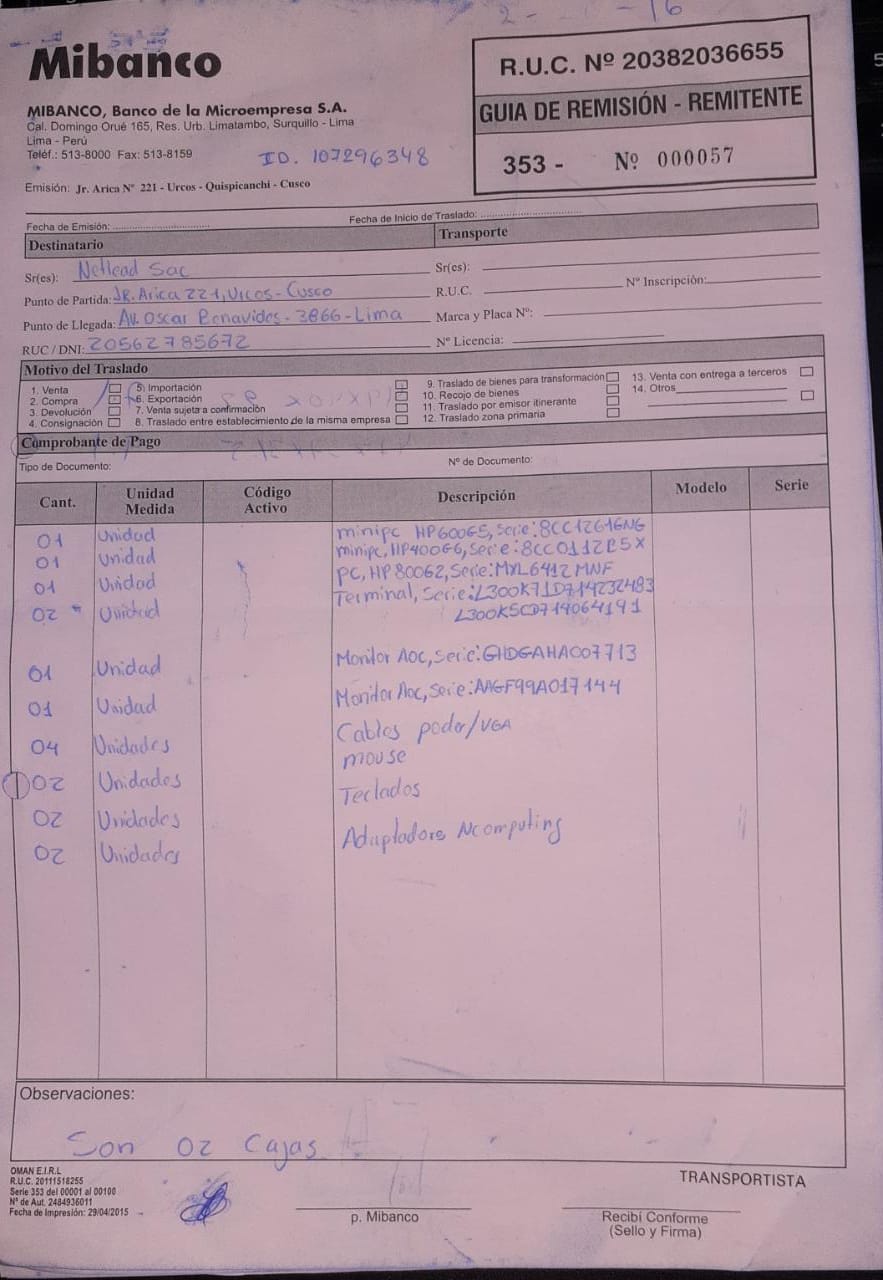 Mibanco
MIBANCO, Banco de la Microempresa S.A.
Cal. Domingo Orué 165, Res. Urb. Limatambo, Surquillo - Lima
Lima - Perú
Teléf.: 513-8000 Fax: 513-8159
ID. 107296348
Emisión: Jr. Arica Nº 221 - Urcos - Quispicanchi - Cusco
R.U.C. Nº 20382036655
GUIA DE REMISIÓN - REMITENTE
353 - Nº 000057
Fecha de Emisión:
Fecha de Inicio de Traslado:
Destinatario
Sr(es): Netlead Sac
Punto de Partida: Jr. Arica 221, Urcos - Cusco
Punto de Llegada: Av. Oscar Benavides - 3866 - Lima
RUC / DNI: 20562785672
Transporte
Sr(es):
R.U.C. Nº Inscripción:
Marca y Placa Nº:
Nº Licencia:
Motivo del Traslado
1. Venta
2. Compra
3. Devolución
4. Consignación
5. Importación
6. Exportación
7. Venta sujeta a confirmación
8. Traslado entre establecimiento de la misma empresa
9. Traslado de bienes para transformación
10. Recojo de bienes
11. Traslado por emisor itinerante
12. Traslado zona primaria
13. Venta con entrega a terceros
14. Otros
Comprobante de Pago
Tipo de Documento: Nº de Documento:
Cant. Unidad Medida Código Activo Descripción Modelo Serie
01 Unidad minipc HP600G5, Serie: 8CC12616NG
01 Unidad minipc, HP400G6, Serie: 8CC0112R5X
01 Unidad PC, HP 800G2, Serie: MXL6412MNF
02 Unidad Terminal, Serie: L300K71D714232483
L300K5CD714064191
01 Unidad Monitor Aoc, Serie: GHDGAHA007713
01 Unidad Monitor Aoc, Serie: AAGF99A017144
04 Unidades Cables poder/VGA
02 Unidades mouse
02 Unidades Teclados
02 Unidades Adaptadore Ncomputing
Observaciones:
Son 02 Cajas
OMAN E.I.R.L
R.U.C. 20111518255
Serie 353 del 00001 al 00100
Nº de Aut. 2484936011
Fecha de Impresión: 29/04/2015
p. Mibanco
TRANSPORTISTA
Recibí Conforme
(Sello y Firma)